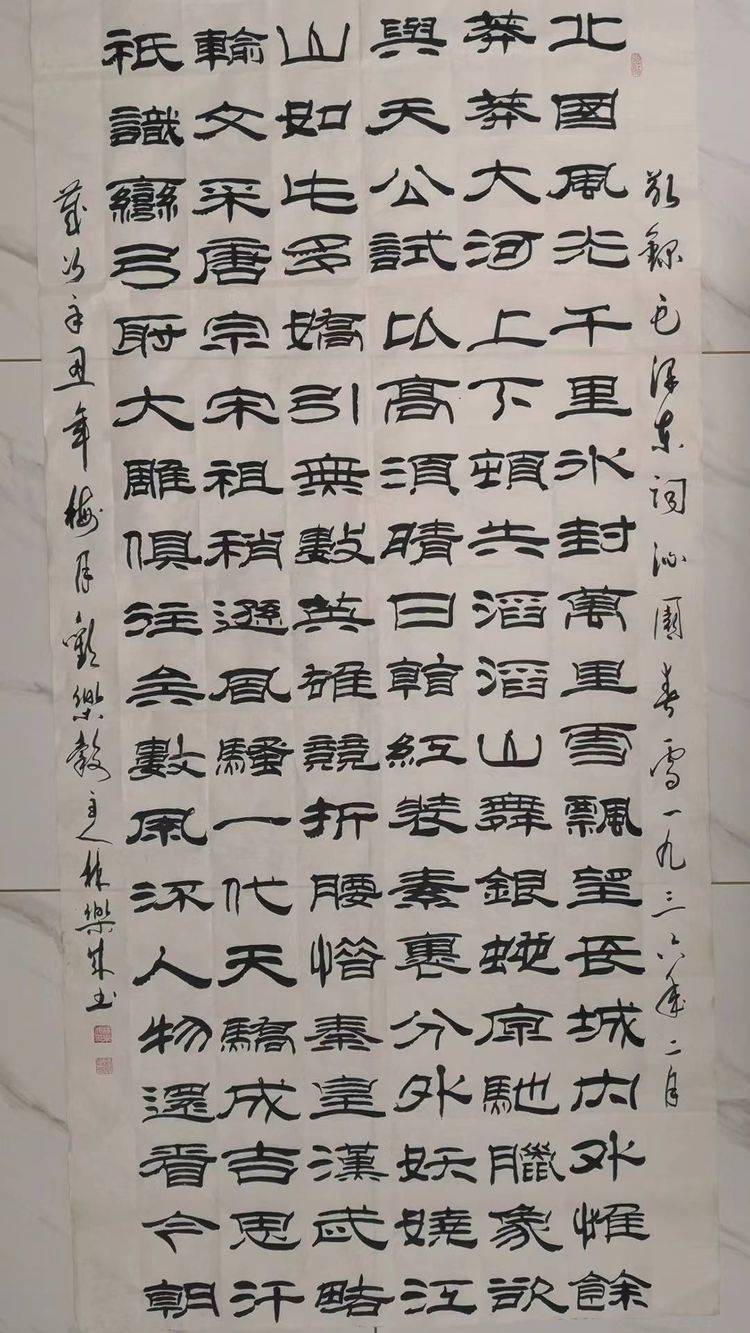 敬錄毛澤東詞沁園春雪一九三六年二月
北國風光千里冰封萬里雪飄望長城內外惟餘
莽莽大河上下頓失滔滔山舞銀蛇原馳臘象欲
與天公試比高須晴日看紅裝素裹分外妖嬈江
山如此多嬌引無數英雄競折腰惜秦皇漢武略
輸文采唐宗宋祖稍遜風騷一代天驕成吉思汗
祇識彎弓射大雕俱往矣數風流人物還看今朝
歲次辛丑年梅月歡樂穀主人林樂書